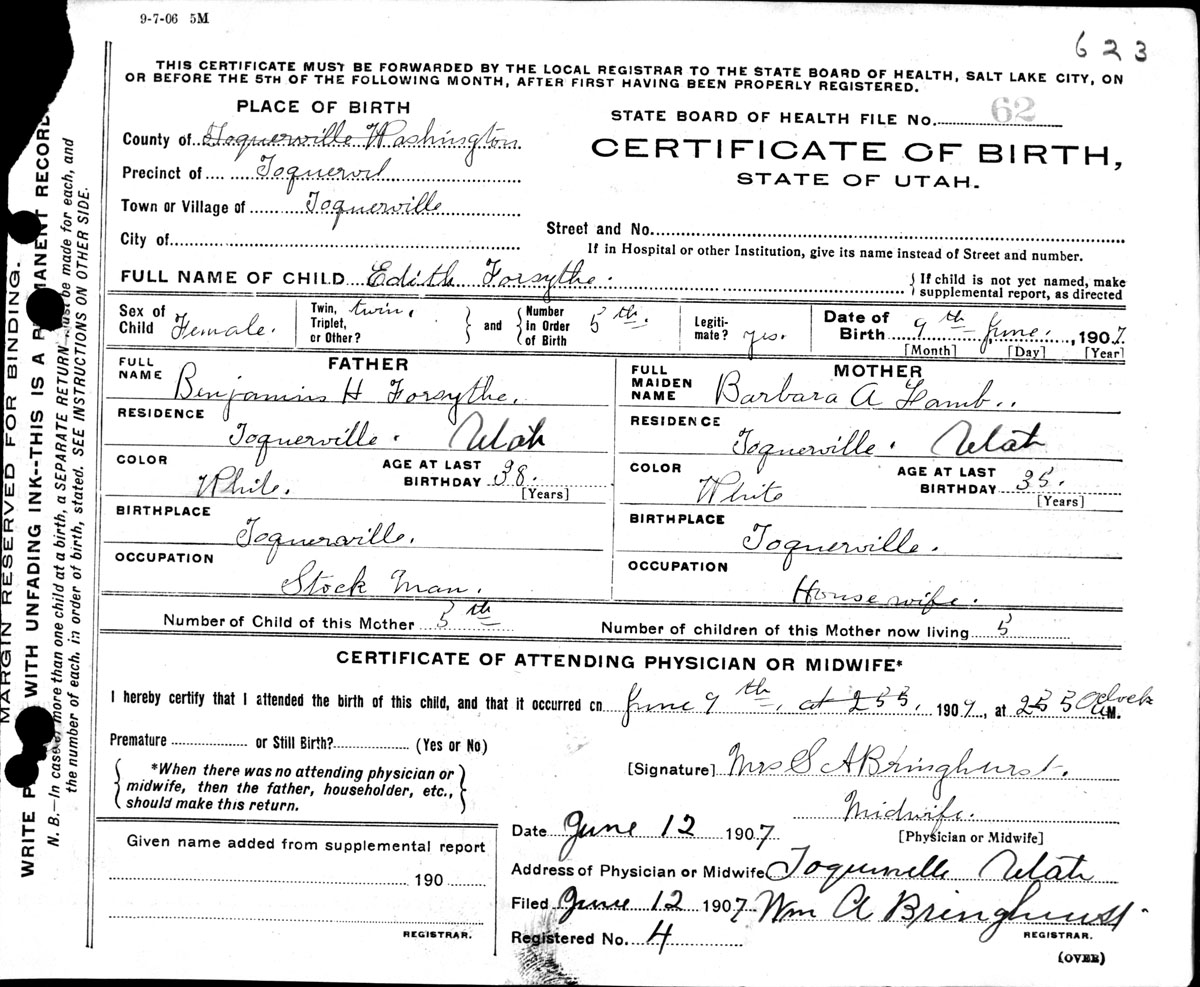 9-7-06 5M
623
THIS CERTIFICATE MUST BE FORWARDED BY THE LOCAL REGISTRAR TO THE STATE BOARD OF HEALTH, SALT LAKE CITY, ON
OR BEFORE THE 5TH OF THE FOLLOWING MONTH, AFTER FIRST HAVING BEEN PROPERLY REGISTERED.
PLACE OF BIRTH
County of Toquerville Washington
Precinct of Toquervil
Town or Village of Toquerville
City of
STATE BOARD OF HEALTH FILE No. 62
CERTIFICATE OF BIRTH,
STATE OF UTAH.
Street and No.
If in Hospital or other Institution, give its name instead of Street and number.
FULL NAME OF CHILD Edith Forsythe.
If child is not yet named, make
supplemental report, as directed
Sex of Child Female.
Twin, Triplet, or Other? twin.
and
Number in Order of Birth 5th.
Legitimate? yes.
Date of Birth 9th June. , 1907.
[Month] [Day] [Year]
FATHER
FULL NAME Benjamin H Forsythe.
RESIDENCE
Toquerville. Utah
COLOR White.
AGE AT LAST BIRTHDAY 38.
[Years]
BIRTHPLACE
Toquerville.
OCCUPATION
Stock Man.
MOTHER
FULL MAIDEN NAME Barbara A Lamb..
RESIDENCE
Toquerville. Utah
COLOR White
AGE AT LAST BIRTHDAY 35.
[Years]
BIRTHPLACE
Toquerville.
OCCUPATION
House wife.
Number of Child of this Mother 5th
Number of children of this Mother now living 5
CERTIFICATE OF ATTENDING PHYSICIAN OR MIDWIFE*
I hereby certify that I attended the birth of this child, and that it occurred on June 9th, at 255. 1907, at 255 Oclock M.
Premature or Still Birth? (Yes or No)
*When there was no attending physician or
midwife, then the father, householder, etc.,
should make this return.
[Signature] Mrs S A Bringhurst.
Midwife.
[Physician or Midwife]
Date June 12 1907
Address of Physician or Midwife Toquerville Utah
Filed June 12 1907 Wm A Bringhurst.
REGISTRAR.
Registered No. 4
(OVER)
Given name added from supplemental report
190
REGISTRAR.
MARGIN RESERVED FOR BINDING.
WRITE WITH UNFADING INK--THIS IS A PERMANENT RECORD
N. B.—In case of more than one child at a birth, a SEPARATE RETURN must be made for each, and
the number of each, in order of birth, stated. SEE INSTRUCTIONS ON OTHER SIDE.